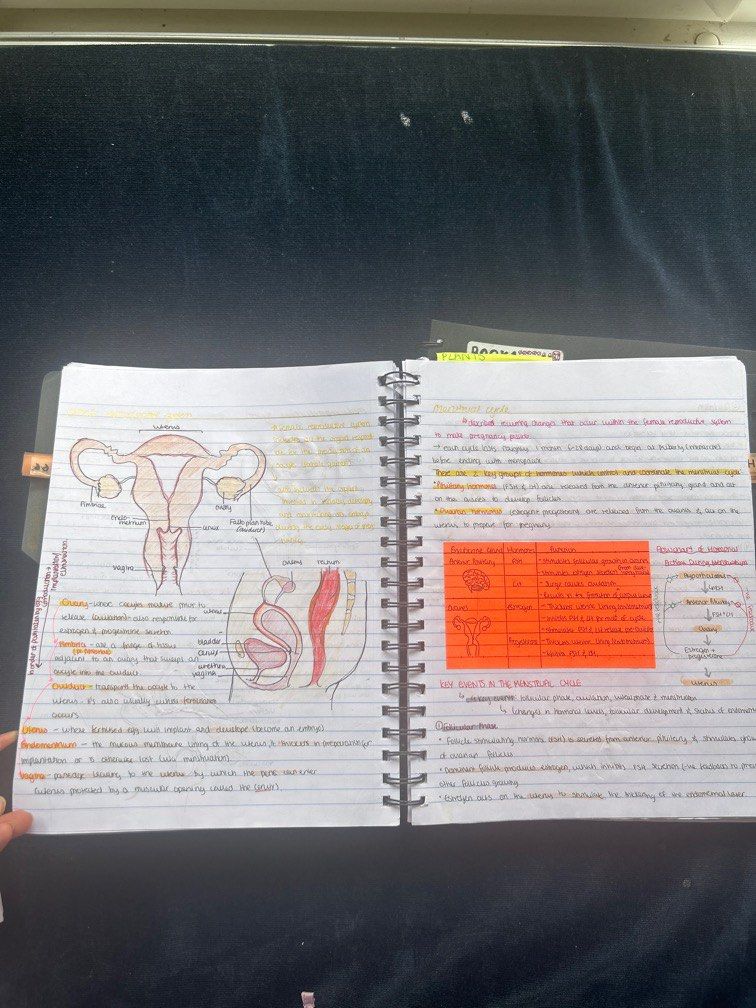 uterus
Fimbriae
ovary
Endo-
metrium
cervix
Fallopian tube
(oviduct)
vagina
ovary
rectum
uterus
bladder
cervix
urethra
vagina
Ovary - where oocytes mature prior to
release (ovulation) also responsible for
estrogen & progesterone secretion
Fimbria - are a fringe of tissue
adjacent to an ovary that sweeps an
oocyte into the oviduct
Oviduct - transport the oocyte to the
uterus - it's also usually where fertilisation
occurs
Uterus - where fertilised egg will implant and develop (become an embryo)
Endometrium - the mucous membrane lining of the uterus, it thickens in preparation for
implantation or is otherwise lost (via menstruation)
Vagina - passage leading to the uterus by which the penis can enter
(uterus protected by a muscular opening called the cervix)
PLANTS
Menstrual cycle
describes recurring changes that occur within the female reproductive system
to make pregnancy possible
→ each cycle lasts roughly 1 month and began at puberty (menarche)
before ending with menopause
There are 2 key groups of hormones which control and coordinate the menstrual cycle
Pituitary hormones (FSH & LH) are released from the anterior pituitary gland and act
on the ovaries to develop follicles
Ovarian hormones (estrogen progesterone) are released from the ovaries & act on the
uterus to prepare for pregnancy
Endocrine Gland Hormone Function
Anterior Pituitary FSH - stimulates follicular growth in ovaries
LH - Surge causes ovulation
- Results in the formation of corpus luteum
Ovaries Estrogen - Thickens uterine lining (endometrium)
- Inhibits FSH & LH for most of cycle
- Stimulates FSH & LH release pre-ovulation
Progesterone - Thickens uterine lining (endometrium)
- Inhibits FSH & LH
Summary of Hormonal
Actions During Menstruation
Hypothalamus
GnRH
Anterior Pituitary
FSH + LH
Ovary
Estrogen +
progesterone
Uterus
KEY EVENTS IN THE MENSTRUAL CYCLE
4 key events: follicular phase, ovulation, luteal phase & menstruation
(changes in hormonal levels, follicular development & status of endometrium
① Follicular Phase
• Follicle stimulating hormone (FSH) is secreted from anterior pituitary & stimulates growth
of ovarian follicles
• Dominant follicle produces estrogen, which inhibits FSH secretion (-ve feedback) to prevent
other follicles growing
• Estrogen acts on the uterus to stimulate the thickening of the endometrial layer